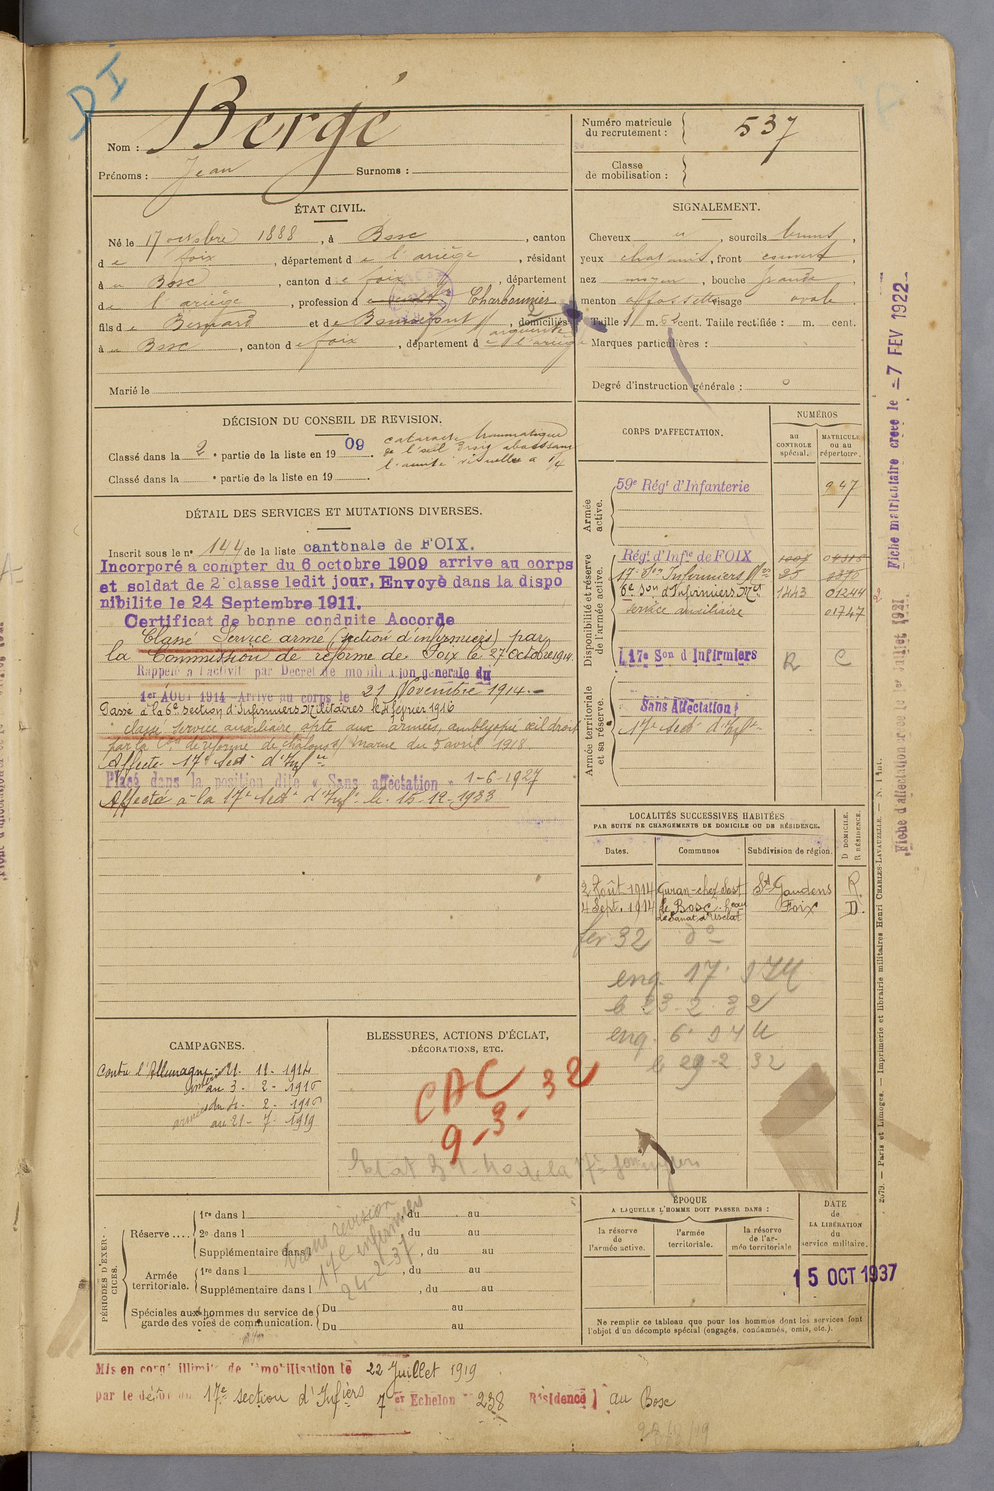 DI
Nom : Bergé
Prénoms : Jean Surnoms :
Numéro matricule du recrutement : 537
Classe de mobilisation :
ÉTAT CIVIL.
Né le 17 octobre 1888, à Bosc, canton
de foix, département de l'ariège, résidant
à u Bosc, canton de foix, département
de l'ariège, profession de Charbonnier
fils de Bernard et de, domiciliés
à u Bosc, canton de foix, département de l'ariège
Marié le
SIGNALEMENT.
Cheveux, sourcils bruns,
yeux, front couvert,
nez moyen, bouche grande
menton à fossette visage ovale
Taille : 1 m. 62 cent. Taille rectifiée : m. cent.
Marques particulières :
Degré d'instruction générale : 0
DÉCISION DU CONSEIL DE REVISION.
Classé dans la 2e partie de la liste en 1909 cataracte traumatique
de l'œil droit abaissant
l'acuité visuelle à 1/4
Classé dans la e partie de la liste en 19
DÉTAIL DES SERVICES ET MUTATIONS DIVERSES.
Inscrit sous le n° 144 de la liste cantonale de FOIX.
Incorporé a compter du 6 octobre 1909 arrive au corps
et soldat de 2e classe ledit jour, Envoyé dans la dispo
nibilite le 24 Septembre 1911.
Certificat de bonne conduite Accorde
Classé Service armé (section d'infirmiers) par
la Commission de réforme de Foix le 27 Octobre 1914
Rappelé à l'activité par Décret de mobilisation générale du
1er AOUT 1914 - Arrivé au corps le 21 Novembre 1914.-
Passé à la 6e Section d'Infirmiers Militaires le 4 février 1916
classé service auxiliaire apte aux armées, amblyopie œil droit
par la Con de réforme de Châlons s/ Marne du 5 avril 1918
Affecté 17e Sect. d'Infres
Placé dans la position dite « Sans affectation » 1-6-1927
Affecté à la 17e Secton d'Infs le 15-12-1933
CORPS D'AFFECTATION.
NUMÉROS
au CONTROLE spécial.
MATRICULE ou au répertoire.
Armée active.
59e Régt d'Infanterie 947
Disponibilité et réserve de l'armée active.
Régt d'Infie de FOIX
17e Son Infirmiers
6e Son d'Infirmiers Mres 1443 01244
service auxiliaire 01747
17e Son d'Infirmiers R C
Armée territoriale et sa réserve.
Sans Affectation
17e Sect d'Infs
LOCALITÉS SUCCESSIVES HABITÉES
PAR SUITE DE CHANGEMENTS DE DOMICILE OU DE RÉSIDENCE.
Dates. Communes Subdivision de région. D DOMICILE. R RÉSIDENCE.
2 Août 1914 St Gaudens R
4 Sept. 1914 Le Bosc Foix D.
fev 32 do
eng. 17
le 23. 2. 32
eng. 6
le 29-2 32
CAMPAGNES.
Contre l'Allemagne
21. 11. 1914
au 3. 2. 1916
armées du 4. 2. 1916
au 21. 7. 1919
BLESSURES, ACTIONS D'ÉCLAT,
DÉCORATIONS, ETC.
CAC
9-3-32
PÉRIODES D'EXERCICES.
Réserve....
1re dans l, du au
2e dans l, du au
Supplémentaire dans l, du au
Armée territoriale.
1re dans l, du au
Supplémentaire dans l, du au
Spéciales aux hommes du service de garde des voies de communication.
Du au
Du au
17e infirmiers
24-2-37
ÉPOQUE
A LAQUELLE L'HOMME DOIT PASSER DANS :
la réserve de l'armée active.
l'armée territoriale.
la réserve de l'armée territoriale
DATE de LA LIBÉRATION du service militaire.
15 OCT 1937
Ne remplir ce tableau que pour les hommes dont les services font
l'objet d'un décompte spécial (engagés, condamnés, omis, etc.).
Mis en congé illimité de démobilisation le 22 Juillet 1919
par le dépôt du 17e section d'Infiers 7e Echelon n° 238 Résidence } au Bosc
Fiche matriculaire créée le -7 FEV 1922
Fiche d'affectation créée le 1er juillet 1921
Paris et Limoges. — Imprimerie et librairie militaires Henri CHARLES-LAVAUZELLE.